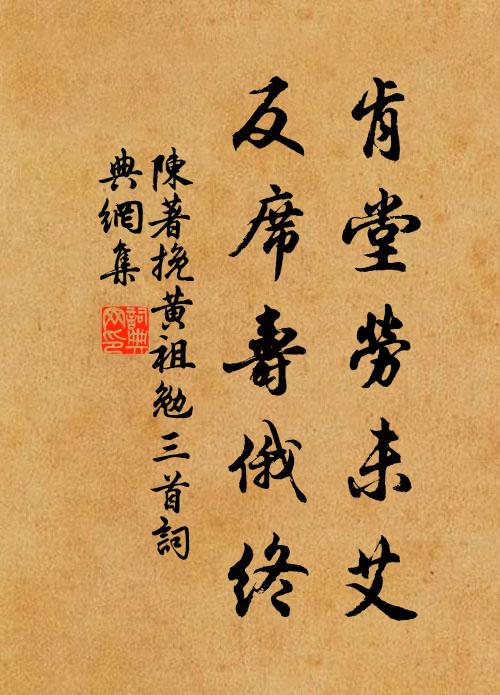 肯堂勞未艾
反席壽俄終
陳著挽黃祖勉三首詞
典網集
詞典網印